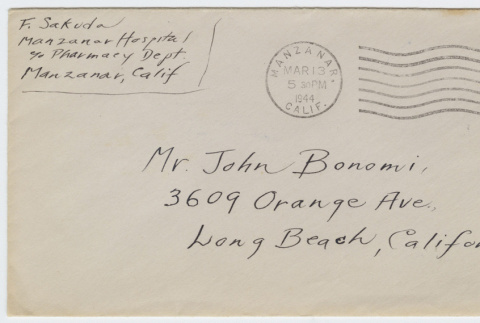 F. Sakuda
Manzanar Hospital
℅ Pharmacy Dept.
Manzanar, Calif
MANZANAR,
MAR 13
5 30 PM
1944
CALIF.
Mr. John Bonomi,
3609 Orange Ave.,
Long Beach, Califor